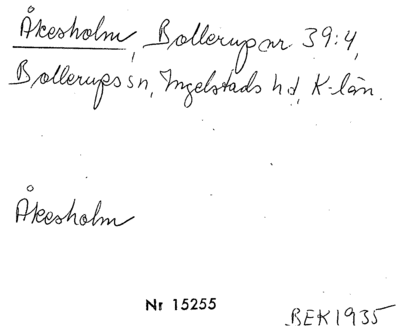 Åkesholm, Bollerup nr. 39:4,
Bollerups sn, Ingelstads hd, K-län.
Åkesholm
Nr 15255
BEK 1935